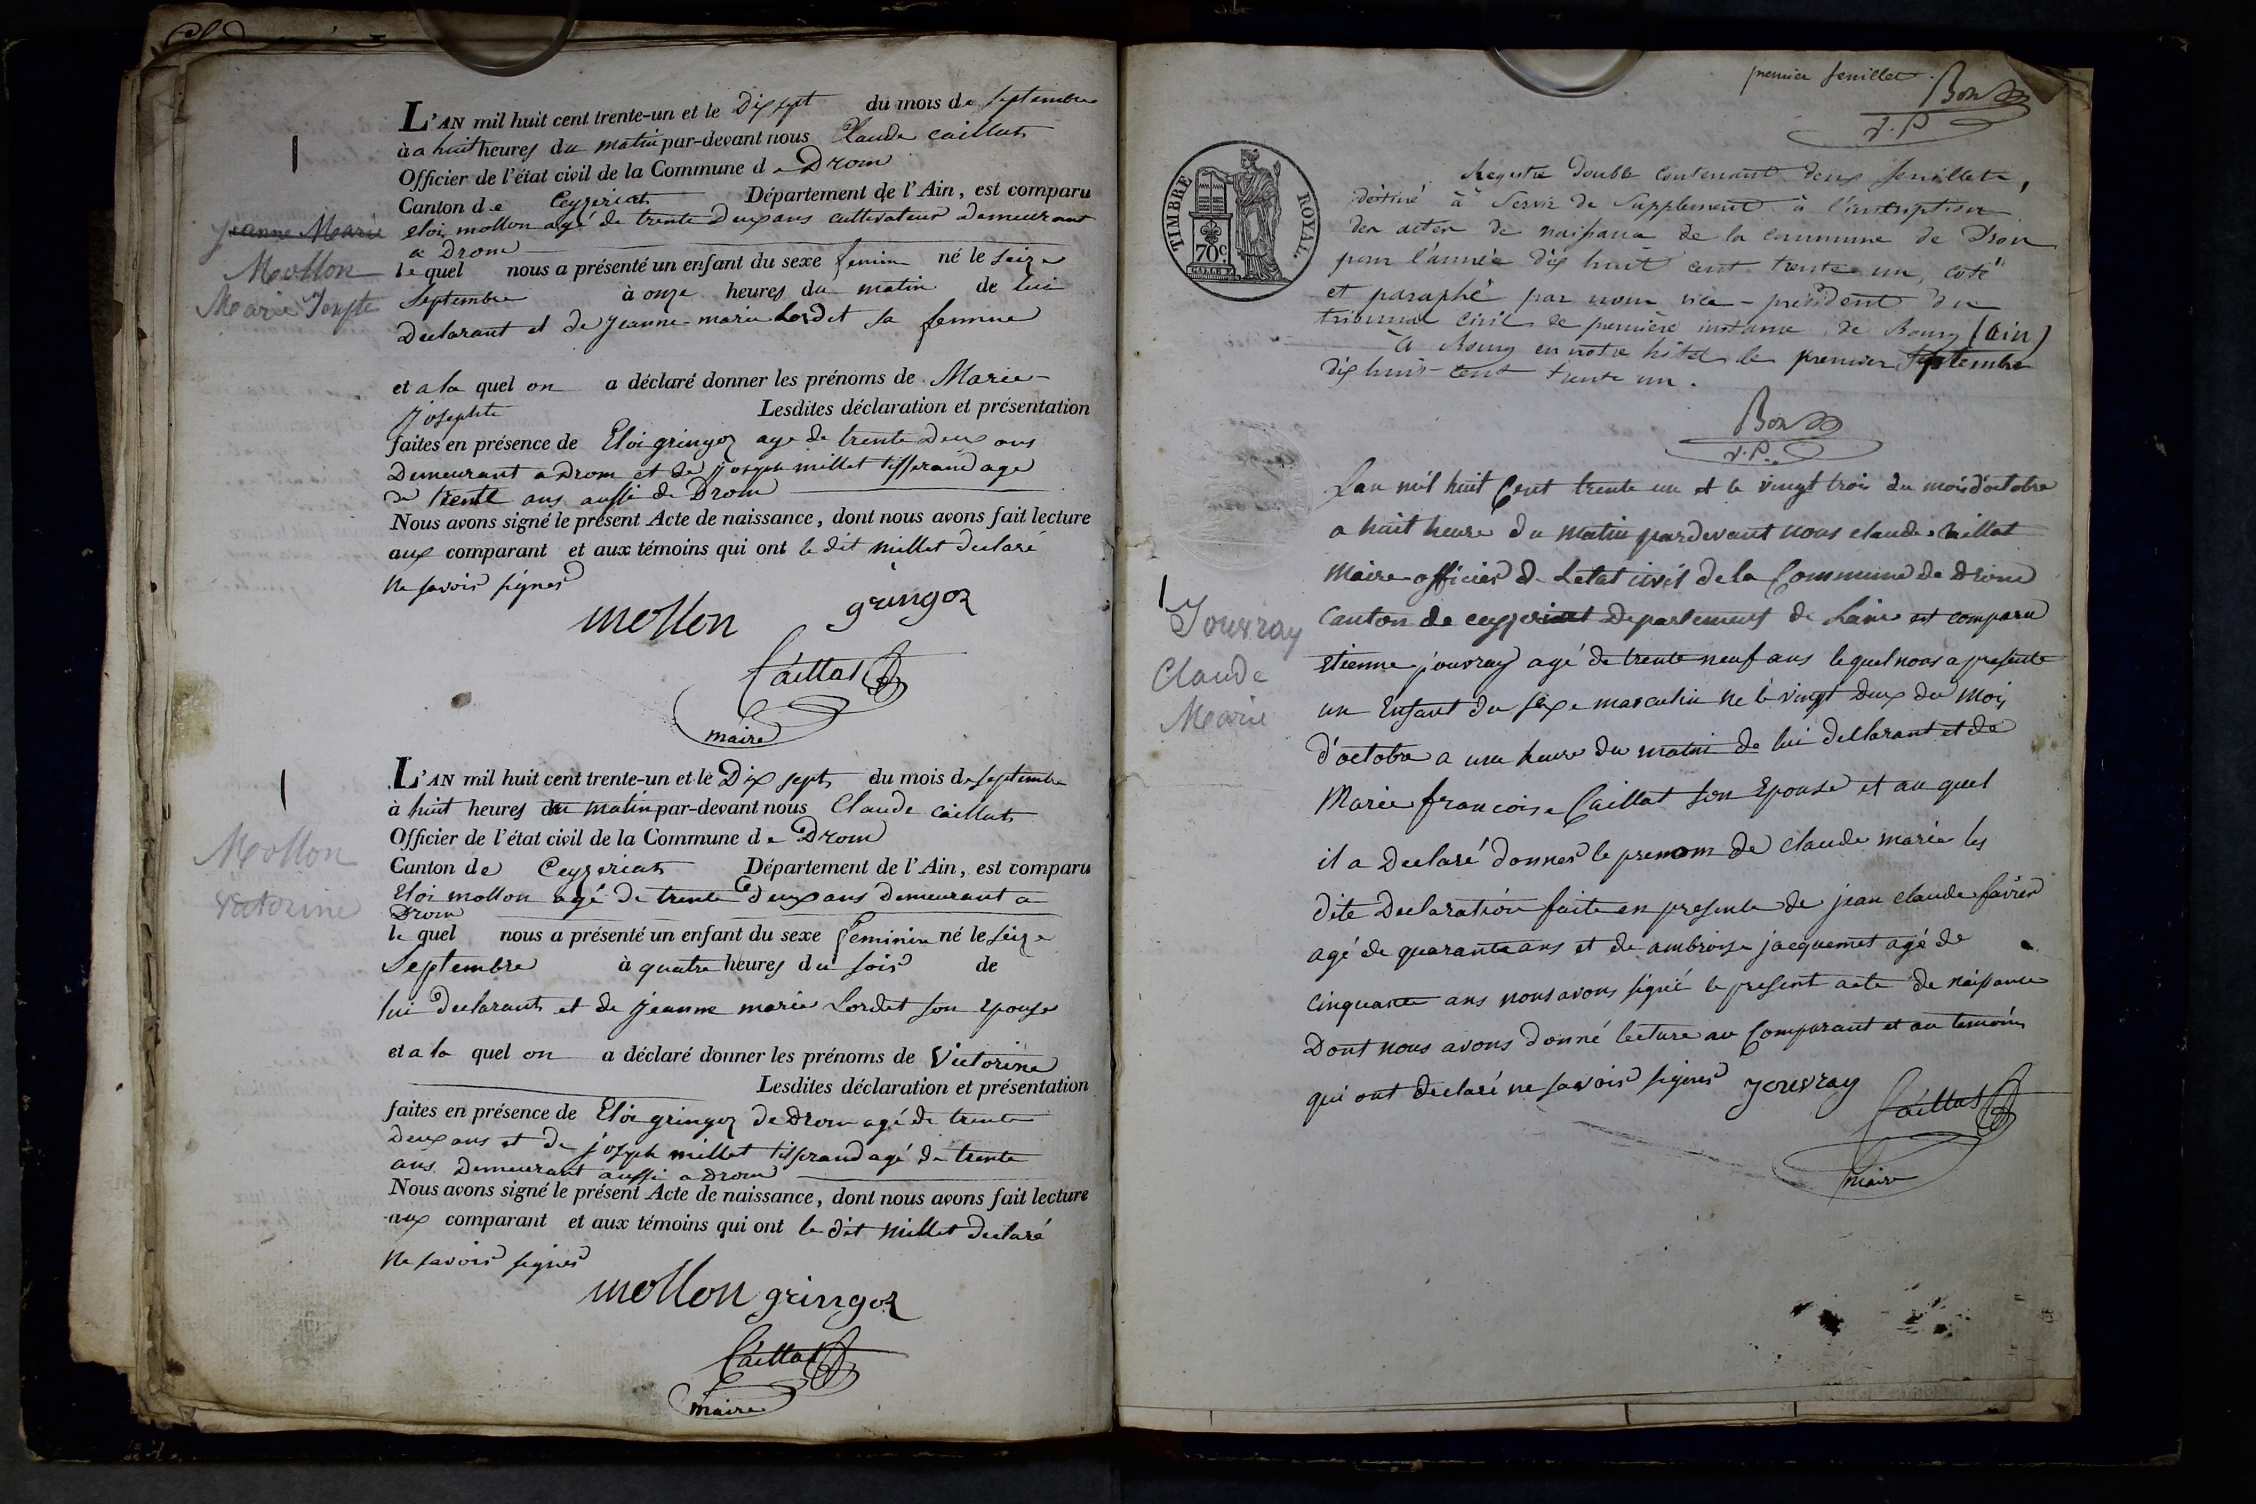 L'AN mil huit cent trente-un et le Dix sept du mois de septembre
à a huit heures du matin par-devant nous Claude caillat
Officier de l'état civil de la Commune de Drom
Canton de Ceyzeriat Département de l'Ain, est comparu
eloi mollon agé de trente Deux ans cultivateur Demeurant
a Drom
le quel nous a présenté un enfant du sexe feminin né le seize
septembre à onze heures du matin de lui
Declarant et de jeanne marie Lordet sa femme
et a la quel on a déclaré donner les prénoms de Marie
josephte Lesdites déclaration et présentation
faites en présence de Eloi gringoz age de trente Deux ans
Demeurant a Drom et de joseph millet tisserand age
de trente ans aussi de Drom
Nous avons signé le présent Acte de naissance, dont nous avons fait lecture
aux comparant et aux témoins qui ont le dit millet declaré
ne savoir signer
mollon gringoz
Caillat
maire
Jeanne Marie
Mollon
Marie Josephte
L'AN mil huit cent trente-un et le Dix sept du mois de septembre
à huit heures du matin par-devant nous Claude caillat
Officier de l'état civil de la Commune de Drom
Canton de Ceyzeriat Département de l'Ain, est comparu
Eloi mollon agé de trente Deux ans Demeurant a
Drom
le quel nous a présenté un enfant du sexe feminin né le seize
Septembre à quatre heures du soir de
lui declarant et de jeanne marie Lordet son epouse
et a la quel on a déclaré donner les prénoms de Victorine
Lesdites déclaration et présentation
faites en présence de Eloi gringoz de Drom agé de trente
Deux ans et de joseph millet tisserand agé de trente
ans Demeurant aussi a Drom
Nous avons signé le présent Acte de naissance, dont nous avons fait lecture
aux comparant et aux témoins qui ont le dit Millet declaré
ne savoir signer
mollon gringoz
Caillat
maire
Mollon
Victorine
premier feuillet
Bon
v.P.
TIMBRE ROYAL.
70c
Registre double contenant deux feuillets,
destiné à servir de supplément à l'inscription
des actes de naissance de la commune de Drom
pour l'année dix huit cent trente un, coté
et paraphé par nous vice-président du
tribunal civil de première instance de Bourg (Ain)
A Bourg en notre hôtel le premier Septembre
dix huit cent trente un.
Bon
v.P.
Lan mil huit Cent trente un et le vingt trois du mois d'octobre
a huit heure du matin pardevant nous claude Caillat
Maire officier de Letat civil de la Commune de Drom
Canton de ceyzeriat Departement de Lain est comparu
etienne jouvray agé de trente neuf ans lequel nous a presente
un Enfant du sexe masculin ne le vingt deux du Mois
d'octobre a une heure du matin de lui declarant et de
Marie francoise Caillat son Epouse et au quel
il a Declaré donner le prenom de claude marie les
dite Declaration faite en presente de jean claude favier
agé de quarante ans et de ambroise jacquemet agé de
cinquante ans nous avons signé le present acte de naissance
Dont nous avons donné lecture au Comparant et au temoins
qui ont declaré ne savoir signer jouvray
Caillat
maire
Jouvray
Claude
Marie